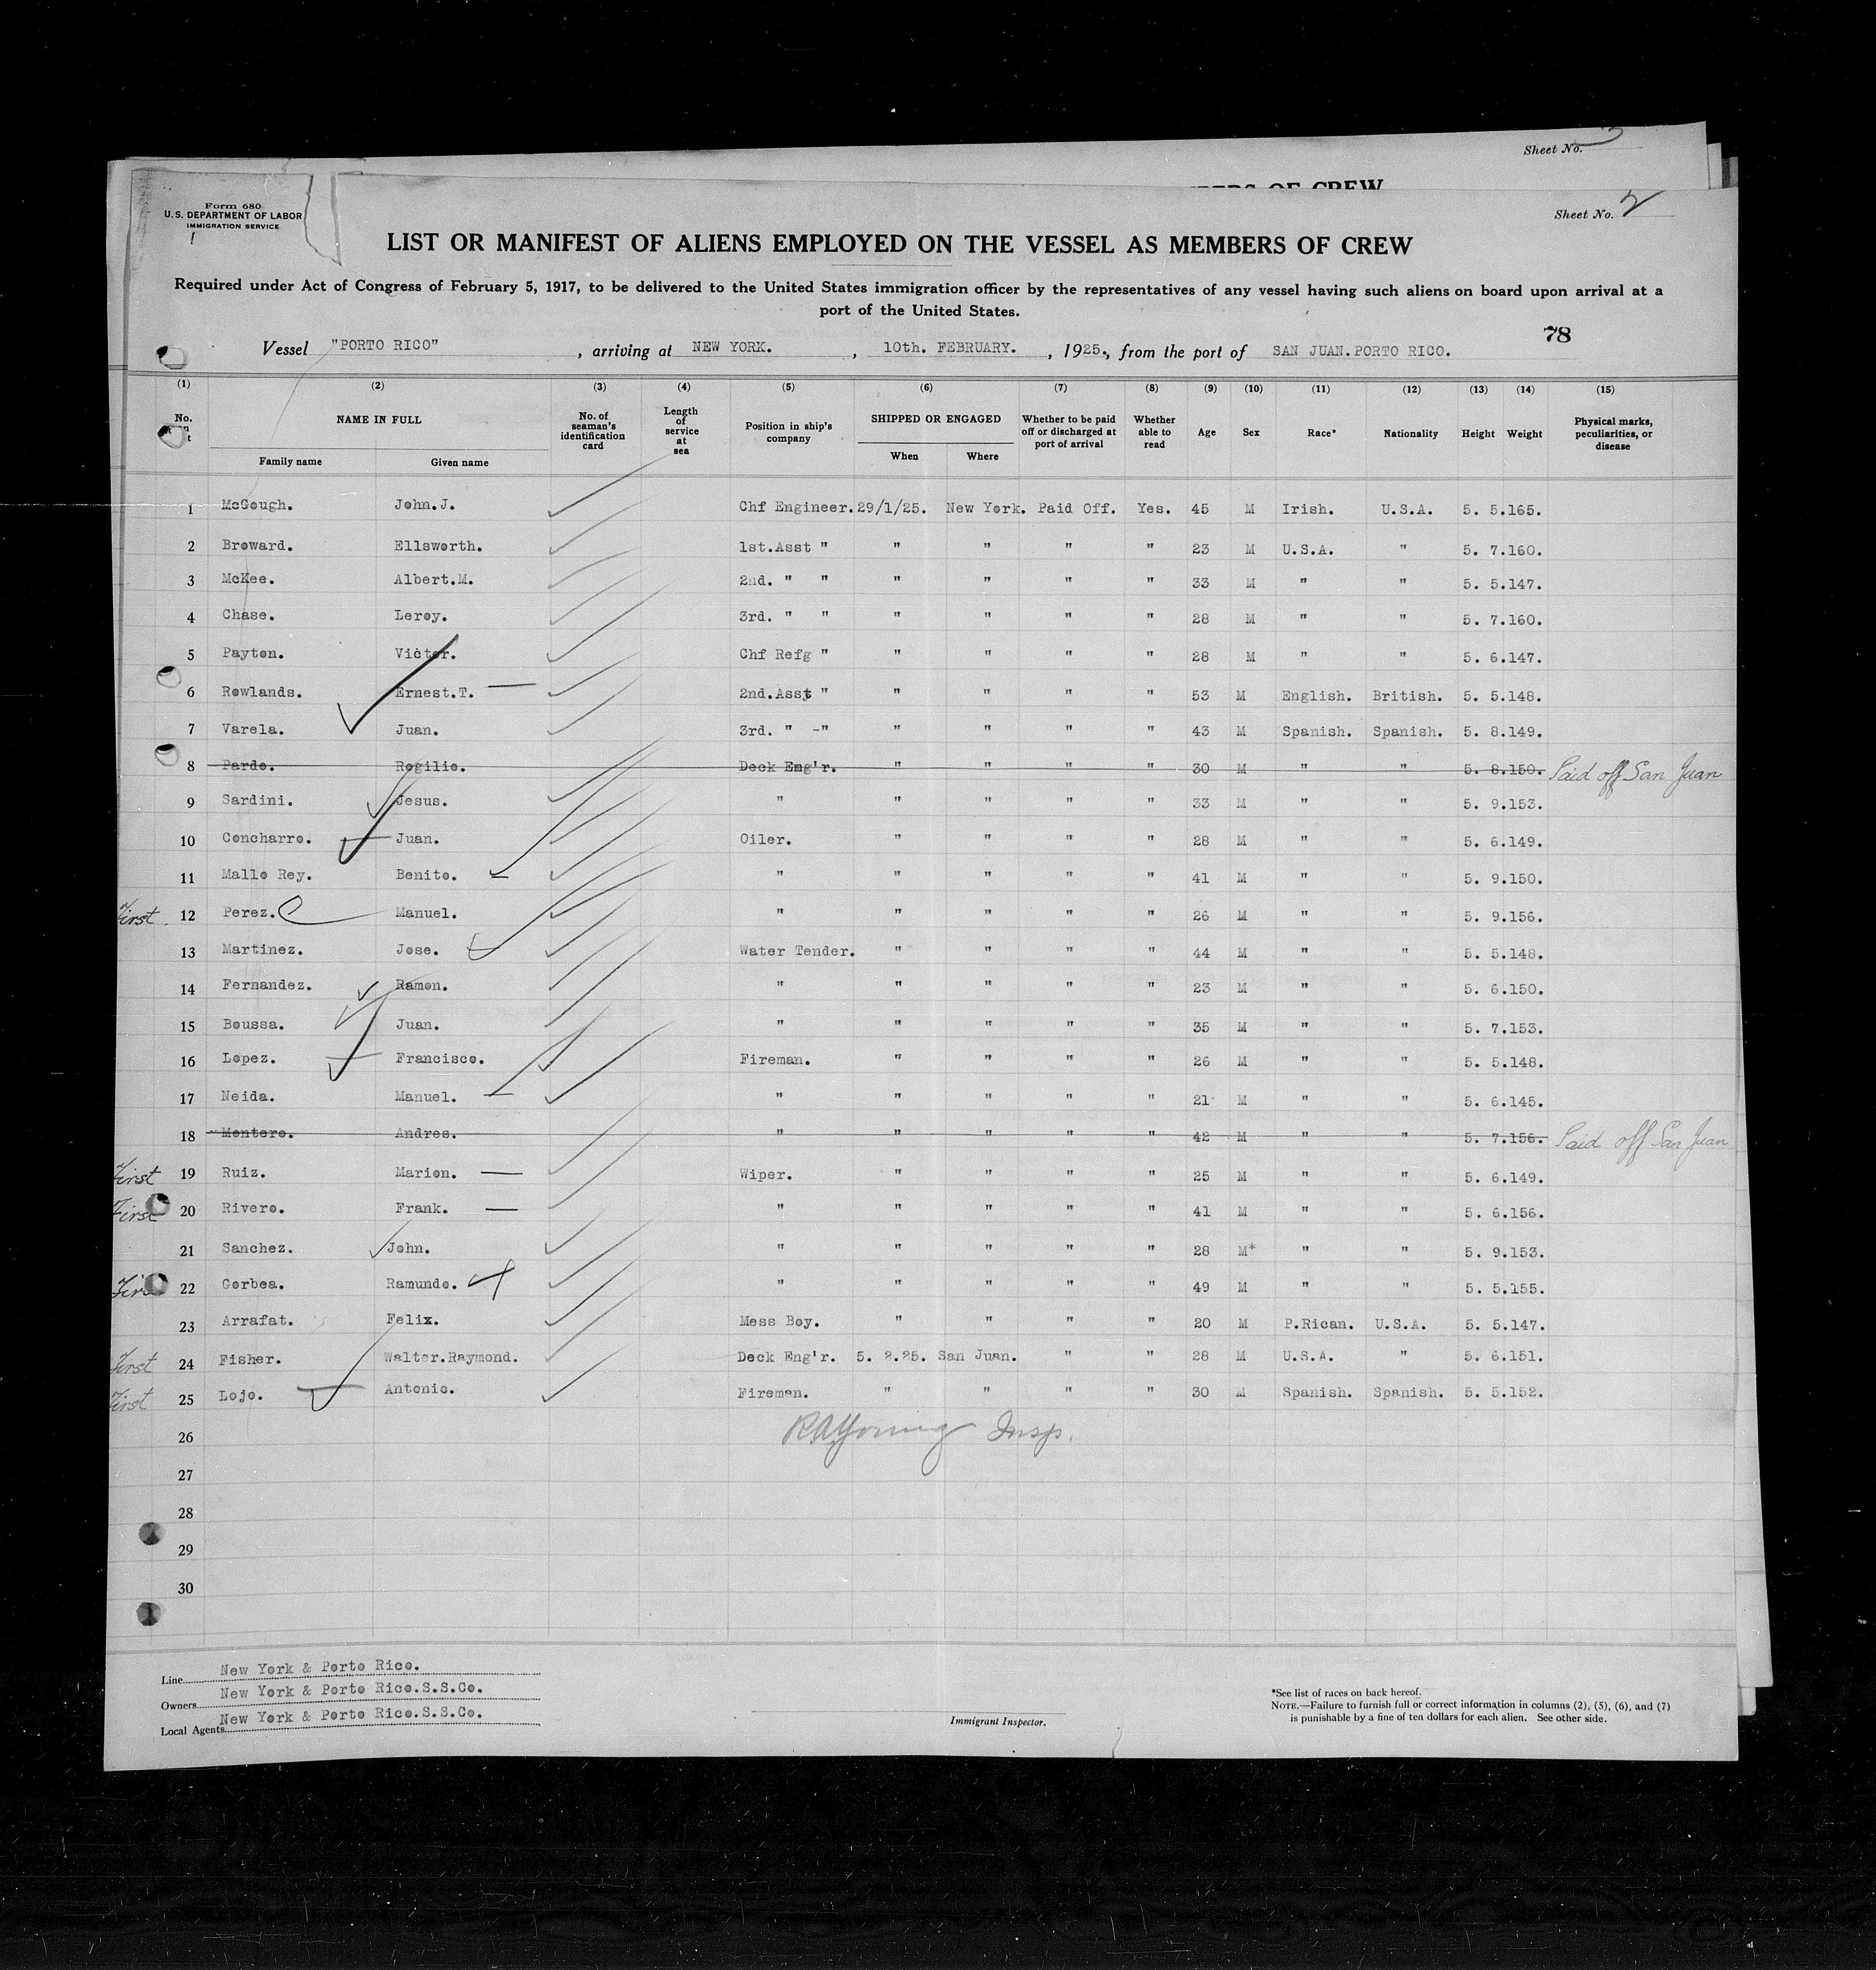 Sheet No. 3
Form 680
U.S. DEPARTMENT OF LABOR
IMMIGRATION SERVICE
Sheet No. 2
LIST OR MANIFEST OF ALIENS EMPLOYED ON THE VESSEL AS MEMBERS OF CREW
Required under Act of Congress of February 5, 1917, to be delivered to the United States immigration officer by the representatives of any vessel having such aliens on board upon arrival at a
port of the United States.
78
Vessel "PORTO RICO", arriving at NEW YORK., 10th. FEBRUARY., 1925., from the port of SAN JUAN.PORTO RICO.
(1) (2) (3) (4) (5) (6) (7) (8) (9) (10) (11) (12) (13) (14) (15)
No. NAME IN FULL No. of seaman's identification card Length of service at sea Position in ship's company SHIPPED OR ENGAGED Whether to be paid off or discharged at port of arrival Whether able to read Age Sex Race* Nationality Height Weight Physical marks, peculiarities, or disease
Family name Given name When Where
1 McGough. John.J. Chf Engineer. 29/1/25. New York. Paid Off. Yes. 45 M Irish. U.S.A. 5. 5. 165.
2 Broward. Ellsworth. 1st.Asst " " " " " 23 M U.S.A. " 5. 7. 160.
3 McKee. Albert.M. 2nd. " " " " " " 33 M " " 5. 5. 147.
4 Chase. Leroy. 3rd. " " " " " " 28 M " " 5. 7. 160.
5 Payton. Victor. Chf Refg " " " " " 28 M " " 5. 6. 147.
6 Rowlands. Ernest.T. 2nd.Asst " " " " " 53 M English. British. 5. 5. 148.
7 Varela. Juan. 3rd. " -" " " " " 43 M Spanish. Spanish. 5. 8. 149.
8 Pardo. Rogilio. Deck Eng'r. " " " " 30 M " " 5. 8. 150. Paid off San Juan
9 Sardini. Jesus. " " " " " 33 M " " 5. 9. 153.
10 Concharro. Juan. Oiler. " " " " 28 M " " 5. 6. 149.
11 Mallo Rey. Benito. " " " " " 41 M " " 5. 9. 150.
First 12 Perez. Manuel. " " " " " 26 M " " 5. 9. 156.
13 Martinez. Jose. Water Tender. " " " " 44 M " " 5. 5. 148.
14 Fernandez. Ramon. " " " " " 23 M " " 5. 6. 150.
15 Boussa. Juan. " " " " " 35 M " " 5. 7. 153.
16 Lopez. Francisco. Fireman. " " " " 26 M " " 5. 5. 148.
17 Neida. Manuel. " " " " " 21 M " " 5. 6. 145.
18 Montero. Andres. " " " " " 42 M " " 5. 7. 156. Paid off San Juan
First 19 Ruiz. Marion. Wiper. " " " " 25 M " " 5. 6. 149.
First 20 Rivero. Frank. " " " " " 41 M " " 5. 6. 156.
21 Sanchez. John. " " " " " 28 M* " " 5. 9. 153.
First 22 Gorbea. Ramundo. " " " " " 49 M " " 5. 5. 155.
23 Arrafat. Felix. Mess Boy. " " " " 20 M P.Rican. U.S.A. 5. 5. 147.
First 24 Fisher. Walter.Raymond. Deck Eng'r. 5. 2.25. San Juan. " " 28 M U.S.A. " 5. 6. 151.
First 25 Lojo. Antonio. Fireman. " " " " 30 M Spanish. Spanish. 5. 5. 152.
26 RAYoung Insp.
27
28
29
30
Line New York & Porto Rico.
Owners New York & Porto Rico.S.S.Co.
Local Agents New York & Porto Rico.S.S.Co.
Immigrant Inspector.
*See list of races on back hereof.
NOTE.—Failure to furnish full or correct information in columns (2), (5), (6), and (7)
is punishable by a fine of ten dollars for each alien. See other side.